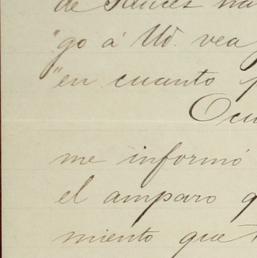 de
"go á Ud. vea
"en cuanto
me informó
el amparo
miento que